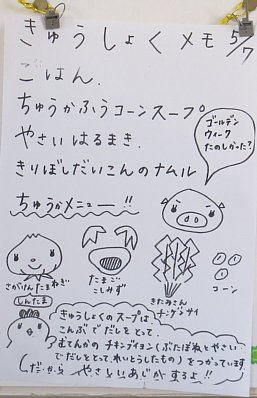 きゅうしょくメモ 5/7
ごはん.
ちゅうかふうコーンスープ
やさいはるまき.
きりぼしだいこんのナムル
ゴールデン
ウィーク
たのしかった？
ちゅうかメニュー!!
さがけんたまねぎ
しんたま
たまご
こしみず
きたみさん
チンゲンサイ
コーン
きゅうしょくのスープは、
こんぶでだしをとって.
むてんかのチキンブイヨン(ぶたぼねとやさい
でだしをとって、れいとうしたもの)をつかっています
だ・か・ら やさしいあじがするよ!!